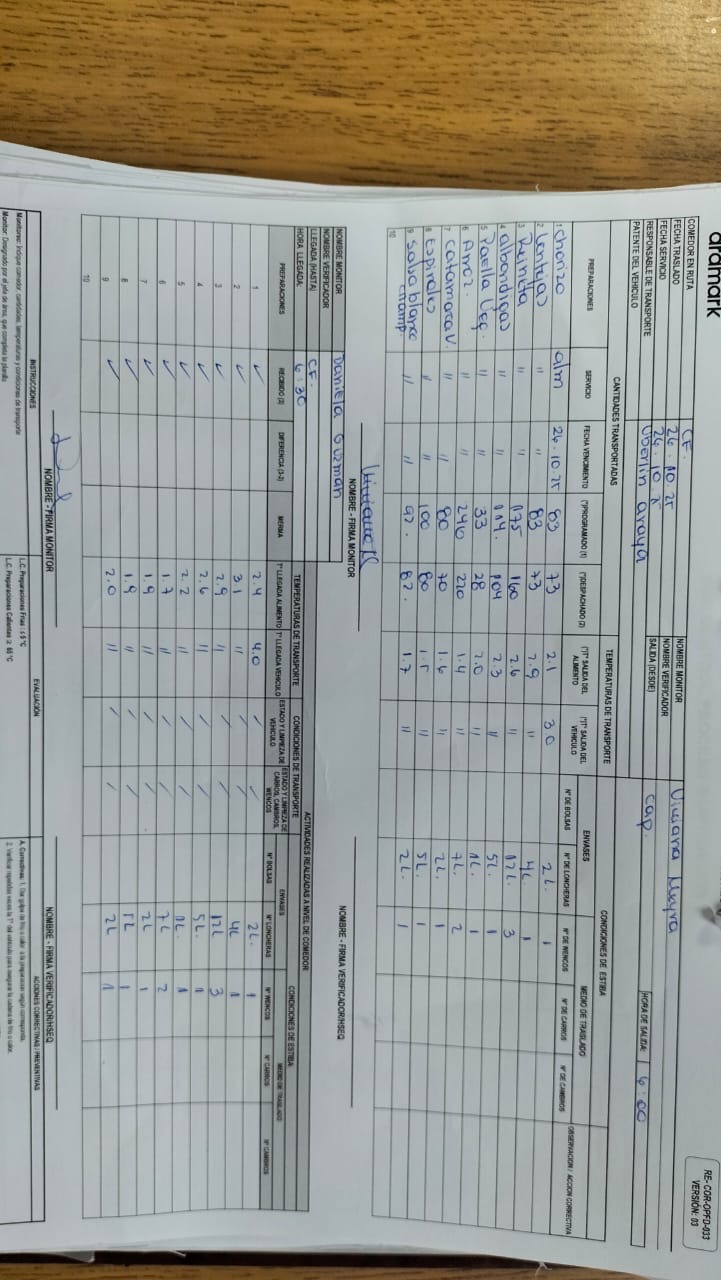 aramark
RE- COR-OPFD-033
VERSIÓN: 03
COMEDOR EN RUTA CF. NOMBRE MONITOR Viviana Neyra
FECHA TRASLADO 26 10 25 NOMBRE VERIFICADOR
FECHA SERVICIO 26 10 25 SALIDA (DESDE) cap. HORA DE SALIDA: 6:00
RESPONSABLE DE TRANSPORTE Uberlin araya
PATENTE DEL VEHICULO
CANTIDADES TRANSPORTADAS TEMPERATURAS DE TRANSPORTE CONDICIONES DE ESTIBA
ENVASES MEDIO DE TRASLADO
PREPARACIONES SERVICIO FECHA VENCIMIENTO (*)PROGRAMADO (1) (*)DESPACHADO (2) (*)T° SALIDA DEL ALIMENTO (*)T° SALIDA DEL VEHICULO N° DE BOLSAS N° DE LONCHERAS N° DE WENCOS N° DE CARROS N° DE CAMBROS OBSERVACION / ACCION CORRECTIVA
1 chorizo alm 26.10.25 83 73 2.1 3.0 2L. 1
2 lentejas " " 83 73 2.9 " 4L. 1
3 Reineta " " 175 160 2.6 " 12L. 3
4 albondigas " " 114. 104 2.3 " 5L. 1
5 Paella Veg. " " 33 28 2.0 " 1L. 1
6 Arroz. " " 246 210 1.4 " 7L. 2
7 Catamarca V. " " 80 70 1.6 " 2L. 1
8 Espirales " " 100 80 1.5 " 5L. 1
9 Salsa blanca champ. " " 92. 82. 1.7 " 2L. 1
10
NOMBRE - FIRMA MONITOR NOMBRE - FIRMA VERIFICADOR/HSEQ
NOMBRE MONITOR Daniela Guzman
NOMBRE VERIFICADOR
LLEGADA (HASTA) CF.
HORA LLEGADA: 6:30
ACTIVIDADES REALIZADAS A NIVEL DE COMEDOR
TEMPERATURAS DE TRANSPORTE CONDICIONES DE TRANSPORTE CONDICIONES DE ESTIBA
ENVASES MEDIO DE TRASLADO
PREPARACIONES RECIBIDO (3) DIFERENCIA (3-2) MERMA T° LLEGADA ALIMENTO T° LLEGADA VEHICULO ESTADO Y LIMPIEZA DE VEHICULO ESTADO Y LIMPIEZA DE CARROS, CAMBROS, WENCOS N° BOLSAS N° LONCHERAS N° WENCOS N° CARROS N° CAMBROS
1 ✓ 2.4 4.0 / / 2L. 1
2 ✓ 3.1 " / / 4L 1
3 ✓ 2.9 " / / 12L 3
4 ✓ 2.6 " / / 5L 1
5 ✓ 2.2 " / / 1L. 1
6 ✓ 1.7 " / / 7L 2
7 ✓ 1.9 " / / 2L 1
8 ✓ 1.9 " / / 5L 1
9 ✓ 2.0 " / / 2L 1
10
NOMBRE - FIRMA MONITOR NOMBRE - FIRMA VERIFICADOR/HSEQ
INSTRUCCIONES EVALUACIÓN ACCIONES CORRECTIVAS / PREVENTIVAS
Monitores: Indique comedor, cantidades, temperaturas y condiciones de transporte
L.C. Preparaciones Frías : ≤ 5 °C
A. Correctivas: 1. Dar golpe de frio o calor a la preparacion según corresponda.
Monitor: Designado por el jefe de área, que completa la planilla
L.C. Preparaciones Calientes ≥ 65 °C
2. Verificar repetidas veces la T° del vehiculo para asegurar la cadena de frio o calor.